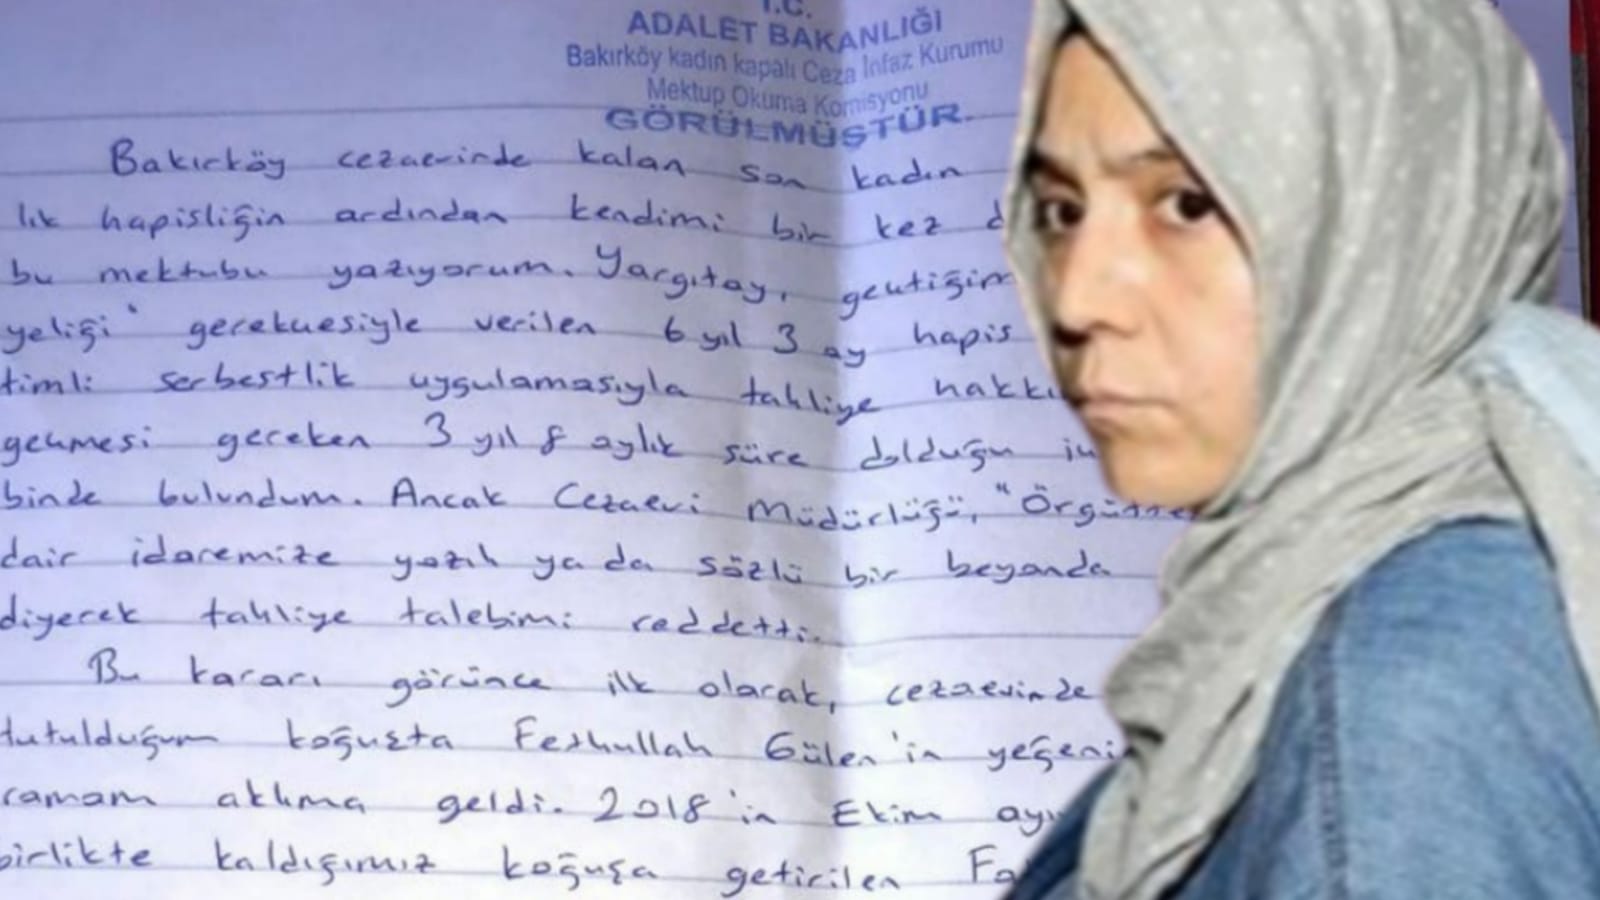 T.C.
ADALET BAKANLIĞI
Bakırköy kadın kapalı Ceza İnfaz Kurumu
Mektup Okuma Komisyonu
GÖRÜLMÜŞTÜR.
Bakırköy cezaevinde kalan son kadın
lık hapisliğin ardından kendimi bir kez
bu mektubu yazıyorum. Yargıtay, geçtiğim
yeliği" gerekçesiyle verilen 6 yıl 3 ay hapis
timli serbestlik uygulamasıyla tahliye hakkı
geçmesi gereken 3 yıl 8 aylık süre dolduğu
binde bulundum. Ancak Cezaevi Müdürlüğü, "Örgütte
dair idaremize yazılı ya da sözlü bir beyanda
diyerek tahliye talebimi reddetti.
Bu kararı görünce ilk olarak, cezaevinde
tutulduğum koğuşta Fethullah Gülen'in yeğeni
ramam aklıma geldi. 2018'in Ekim
birlikte kaldığımız koğuşa getirilen